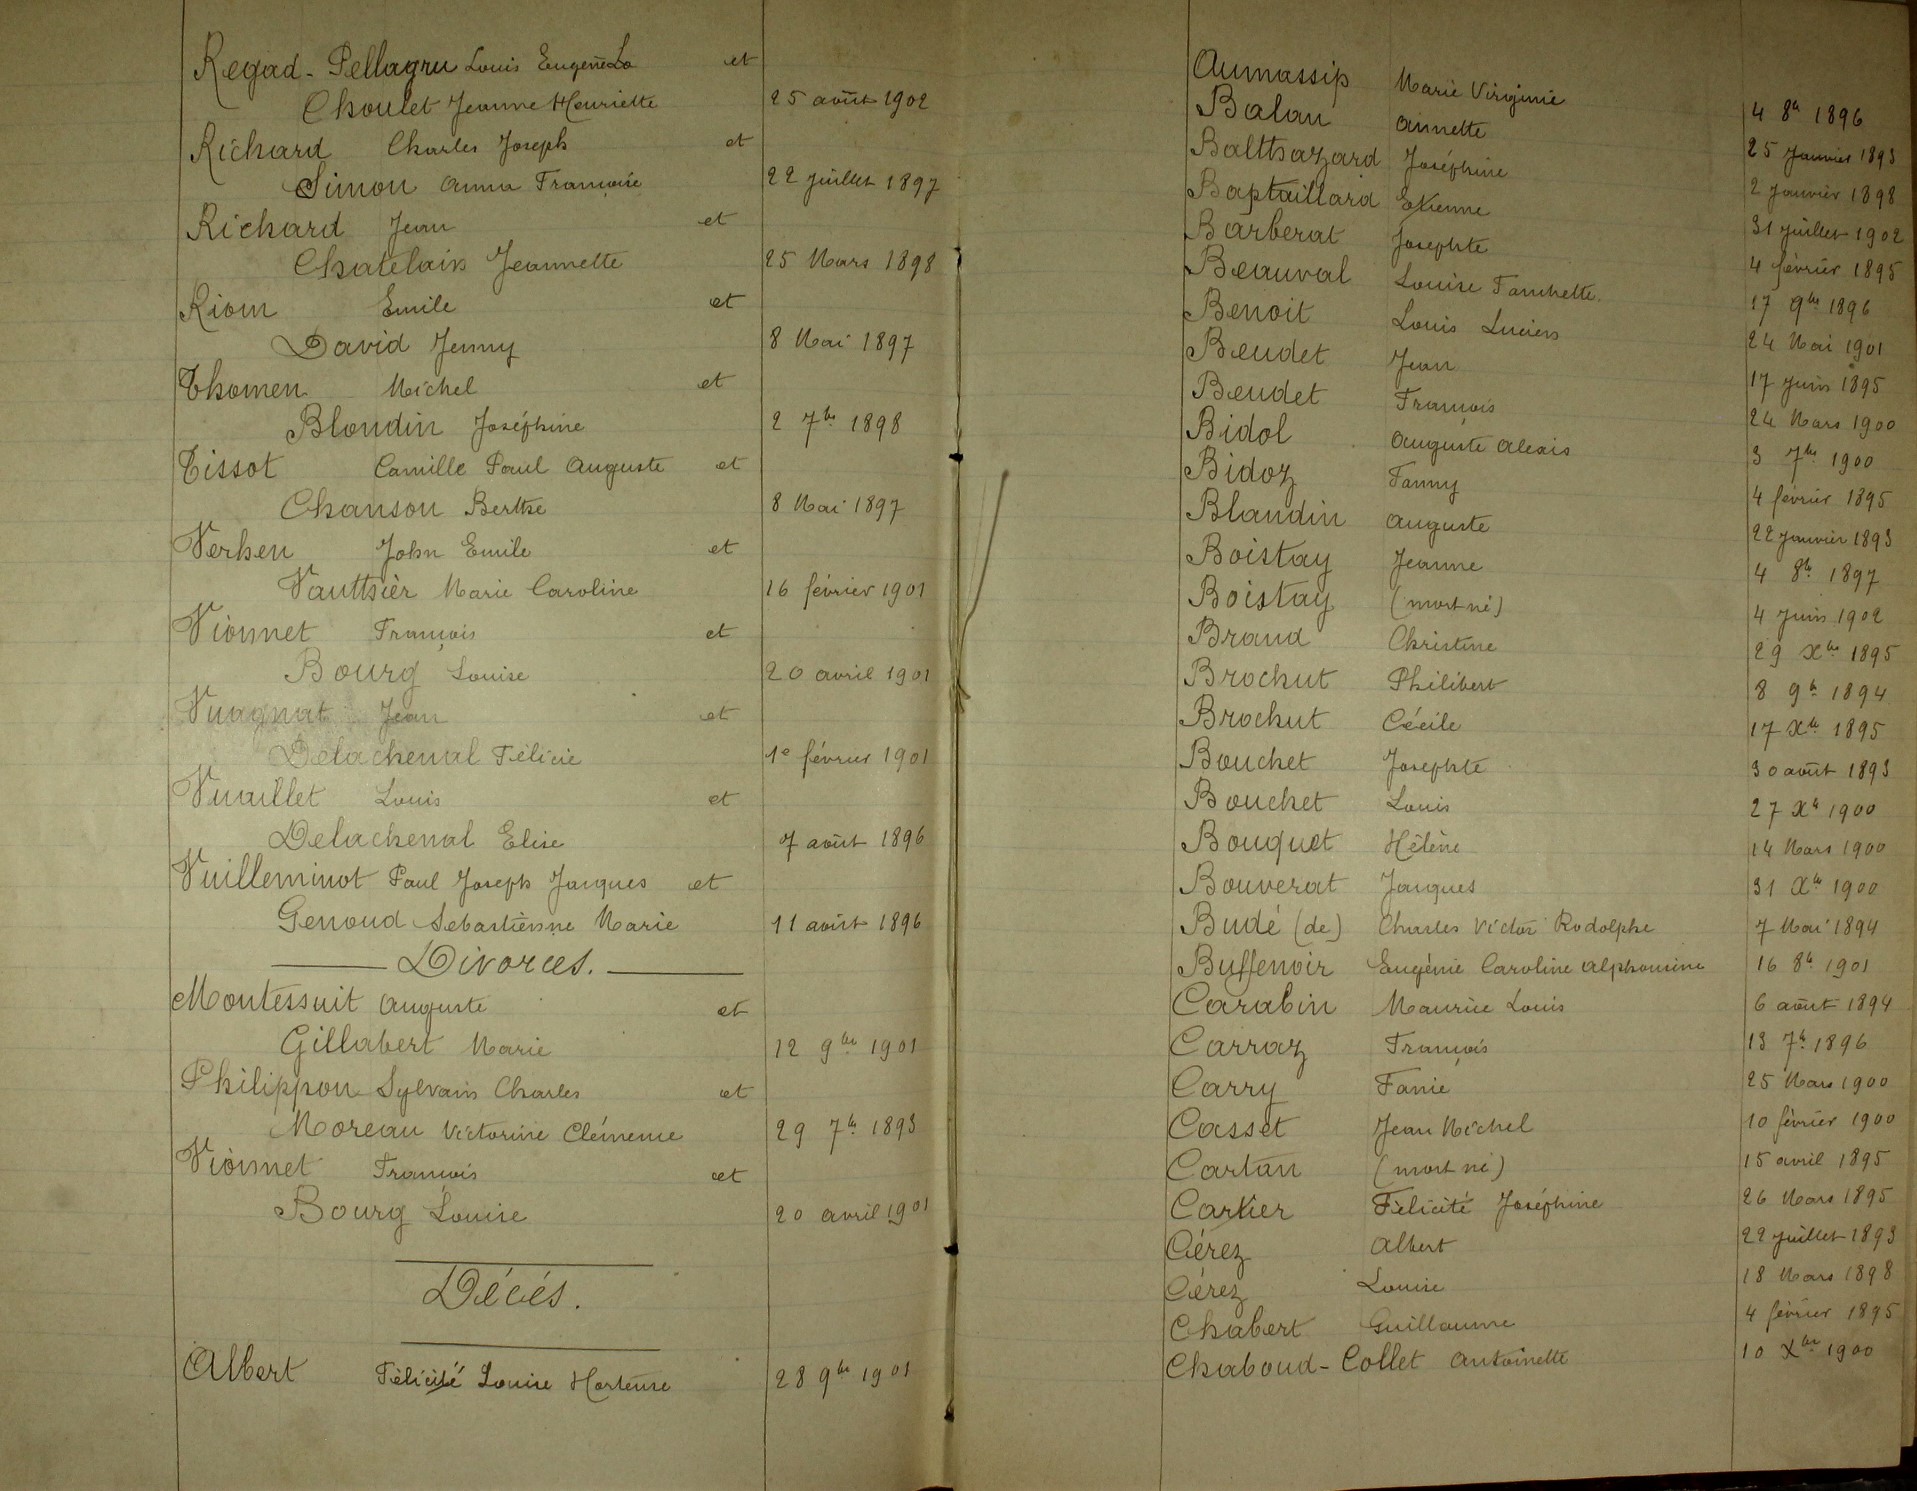 Regad - Pellagru Louis Eugène et
Choulet Jeanne Henriette 25 août 1902
Richard Charles Joseph et
Simon Anna Françoise 22 juillet 1897
Richard Jean et
Chatelain Jeannette 25 Mars 1898
Riom Emile et
David Jenny 8 Mai 1897
Thomen Michel et
Blondin Joséphine 2 7bre 1898
Tissot Camille Paul Auguste et
Chanson Berthe 8 Mai 1897
Verhen John Emile et
Vautthier Marie Caroline 16 février 1901
Vionnet François et
Bourg Louise 20 avril 1901
Vuagnat Jean et
Delachenal Félicie 1e février 1901
Vuaillet Louis et
Delachenal Elise 7 août 1896
Vuilleminot Paul Joseph Jacques et
Genoud Sebastienne Marie 11 août 1896
Divorces.
Montessuit Auguste et
Gillabert Marie 12 9bre 1901
Philippon Sylvain Charles et
Moreau Victorine Clémence 29 7bre 1893
Vionnet François et
Bourg Louise 20 avril 1901
Décés.
Albert Félicité Louise Hortense 28 9bre 1901
Aumassip Marie Virginie 4 8bre 1896
Balan Annette 25 Janvier 1893
Balthazard Joséphine 2 Janvier 1898
Baptaillard Etienne 31 juillet 1902
Barberat Josephte 4 février 1895
Beauval Louise Fanchette. 17 9bre 1896
Benoit Louis Lucien 24 Mai 1901
Beudet Jean 17 Juin 1895
Beudet François 24 Mars 1900
Bidol Auguste Alexis 3 7bre 1900
Bidoz Fanny 4 février 1895
Blandin Auguste 22 Janvier 1893
Boistay Jeanne 4 8bre 1897
Boistay (mort né) 4 Juin 1902
Braud Christine 29 Xbre 1895
Brochut Philibert 8 9bre 1894
Brochut Cécile 17 Xbre 1895
Bouchet Josephte 30 août 1893
Bouchet Louis 27 Xbre 1900
Bouquet Hélène 14 Mars 1900
Bouverat Jacques 31 Xbre 1900
Budé (de) Charles Victor Rodolphe 7 Mai 1894
Buffenoir Eugénie Caroline Alphonsine 16 8bre 1901
Carabin Maurice Louis 6 août 1894
Carraz François 13 7bre 1896
Carry Fanie 25 Mars 1900
Casset Jean Michel 10 février 1900
Cartan (mort né) 15 avril 1895
Cartier Félicité Joséphine 26 Mars 1895
Cérez Albert 22 juillet 1893
Cérez Louise 18 Mars 1898
Chabert Guillaume 4 février 1895
Chaboud - Collet Antoinette 10 Xbre 1900